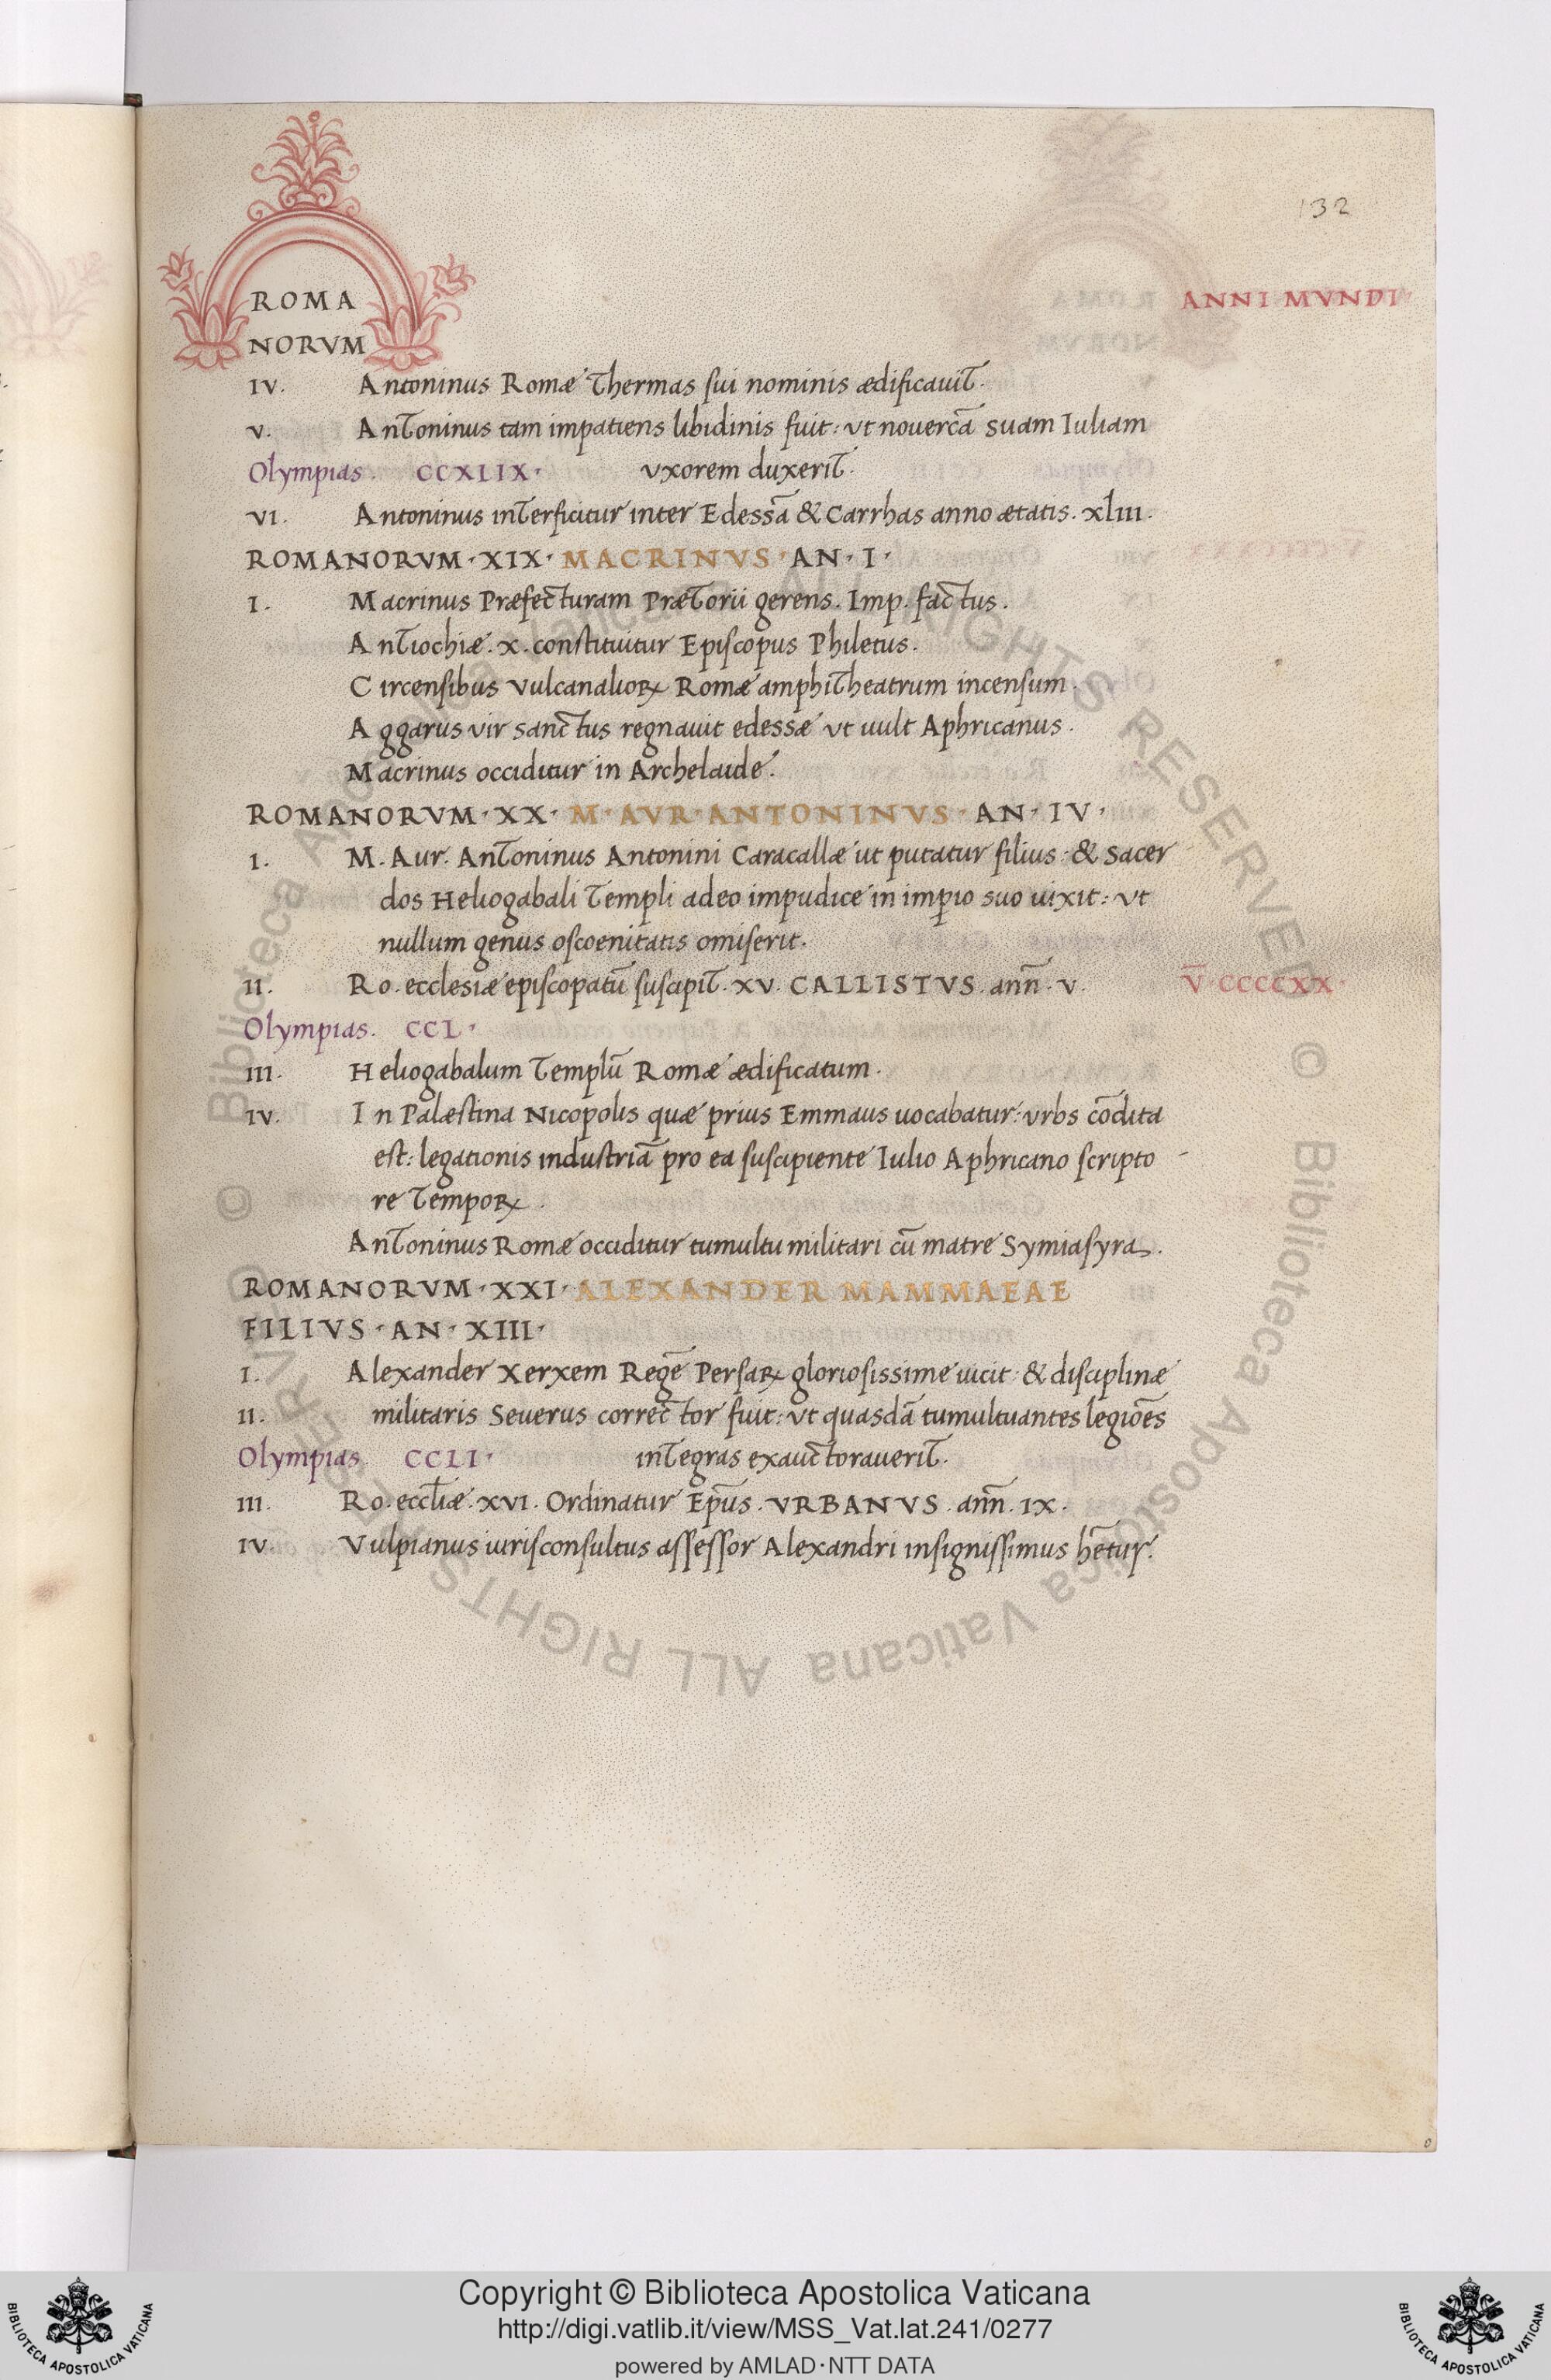 132
ROMA
NORVM
ANNI MVNDI
IV. Antoninus Romæ Thermas sui nominis ædificauit.
V. Antoninus tam impatiens libidinis fuit: ut nouercā suam Iuliam
Olympias. CCXLIX. uxorem duxerit.
VI. Antoninus interficitur inter Edessā & Carrhas anno ætatis. xliii.
ROMANORVM · XIX · MACRINVS · AN · I ·
I. Macrinus Præfecturam Prætorii gerens. Imp. factus.
Antiochiæ. x. constituitur Episcopus Philetus.
Circensibus Vulcanalioꝝ Romæ amphitheatrum incensum.
Aggarus vir sanctus regnauit edessæ ut uult Aphricanus.
Macrinus occiditur in Archelaide.
ROMANORVM · XX · M · AVR · ANTONINVS · AN · IV ·
I. M. Aur. Antoninus Antonini Caracallæ ut putatur filius: & sacer
dos Heliogabali Templi adeo impudice in imꝑio suo uixit: ut
nullum genus oscoenitatis omiserit.
II. Ro. ecclesiæ episcopatū suscipit. XV. CALLISTVS. ann̄. V. V̄ · CCCCXX ·
Olympias. CCL ·
III. Heliogabalum Templū Romæ ædificatum.
IV. In Palæstina Nicopolis quæ prius Emmaus uocabatur: urbs cōdita
est: legationis industriā pro ea suscipiente Iulio Aphricano scripto -
re Tempoꝝ.
Antoninus Romæ occiditur tumultu militari cū matre Symiasyra.
ROMANORVM · XXI · ALEXANDER MAMMAEAE
FILIVS · AN · XIII ·
I. Alexander Xerxem Regē Persaꝝ gloriosissime uicit: & disciplinæ
II. militaris Seuerus corrector fuit: ut quasdā tumultuantes legiōes
Olympias. CCLI · integras exauctorauerit.
III. Ro. eccl̄iæ. XVI. Ordinatur Ep̄us. VRBANVS. ann̄. IX.
IV. Vulpianus iurisconsultus assessor Alexandri insignissimus h̄etur.
© Biblioteca Apostolica Vaticana ALL RIGHTS RESERVED © Biblioteca Apostolica Vaticana ALL RIGHTS RESERVED
BIBLIOTECA APOSTOLICA VATICANA
Copyright © Biblioteca Apostolica Vaticana
http://digi.vatlib.it/view/MSS_Vat.lat.241/0277
powered by AMLAD·NTT DATA
BIBLIOTECA APOSTOLICA VATICANA